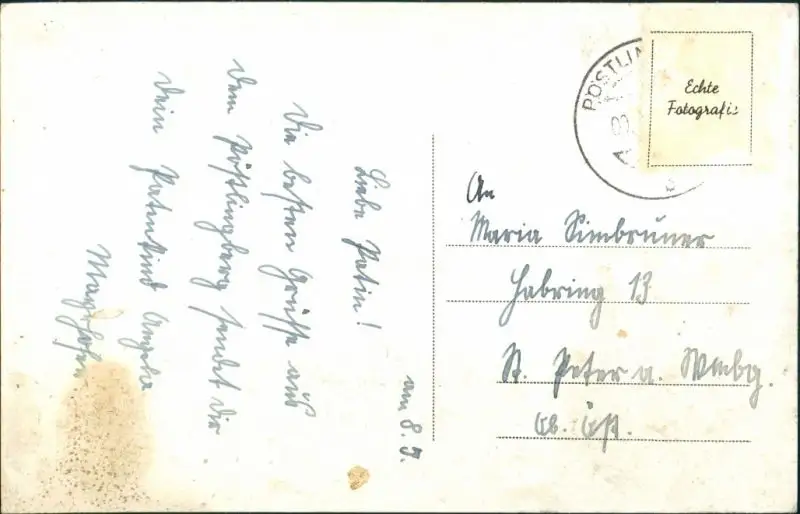 am 8. 7.
Liebe Patin!
Die besten Grüsse aus
dem Pöstlingberg sendet dir
Dein Patenkind Angela
PÖSTLIN
Echte
Fotografie
An
Maria Simbruner
Habring 13
St. Peter a. Wmbg.
Ob. Öst.